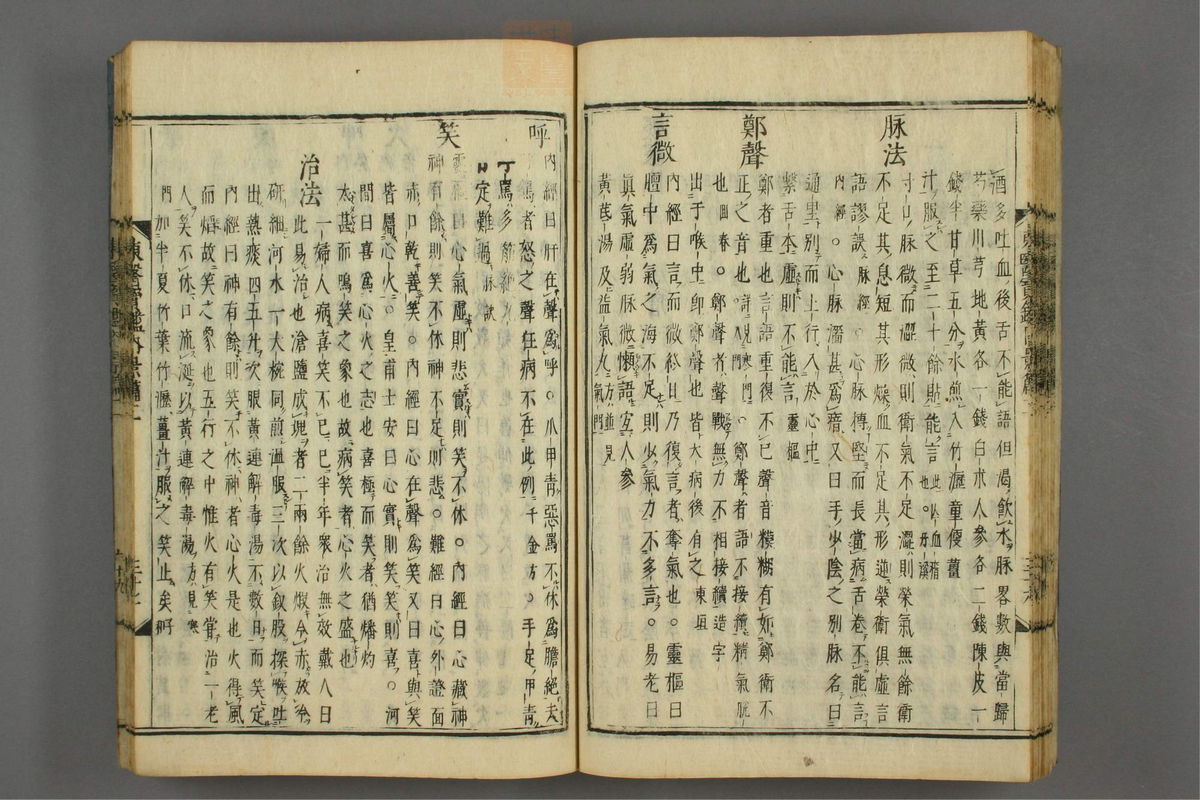 酒多吐血後舌不能語但渴飲水脉畧數與當歸
芍藥川芎地黃各一錢白朮人參各二錢陳皮一
錢半甘草五分水煎入竹瀝童便薑
汁服之至二十餘貼能言此心血滯也丹溪
脉法
寸口脉微而澀微則衛氣不足澀則榮氣無餘衛
不足其息短其形燥血不足其形逆榮衛俱虛言
語謬誤脉經○心脉搏堅而長當病舌卷不能言
內經○心脉濇甚爲瘖又曰手少陰之別脉名曰
通里別而上行入於心中
繫舌本虛則不能言靈樞
鄭聲
鄭者重也言語重復不已聲音模糊有如鄭衛不
正之音也詳見寒門○鄭聲者語不接續精氣脫
也回春○鄭聲者聲戰無力不相接續造字
出于喉中即鄭聲也皆大病後有之東垣
言微
內經曰言而微終日乃復言者奪氣也○靈樞曰
膻中爲氣之海不足則少氣力不多言○易老曰
眞氣虛弱脉微懶語宜人參
黃芪湯及益氣丸方並見氣門
呼
內經曰肝在聲爲呼○爪甲青惡罵不休爲膽絕夫
罵者怒之聲狂病不在此例千金方○手足甲青
罵多筋絕
定難過脉訣
笑
靈樞曰心氣虛則悲實則笑不休○內經曰心藏神
神有餘則笑不休神不足則悲○難經曰心外證面
赤口乾善笑○內經曰心在聲爲笑又曰喜與笑
皆屬心火○皇甫士安曰心實則笑笑則喜○河
間曰喜爲心火之志也喜極而笑者猶燔灼
太甚而鳴笑之象也故病笑者心火之盛也
治法
一婦人病喜笑不已已半年衆治無效戴人曰
此易治也滄鹽成塊者二兩餘火煆令赤放冷
硏細河水一大椀同煎溫服三次以釵股探喉吐
出熱痰四五升次服黃連解毒湯不數日而笑定
內經曰神有餘則笑不休神者心火是也火得風
而焰故笑之象也五行之中惟火有笑嘗治一老
人笑不休口流涎以黃連解毒湯方見寒
門加半夏竹葉竹瀝薑汁服之笑止矣